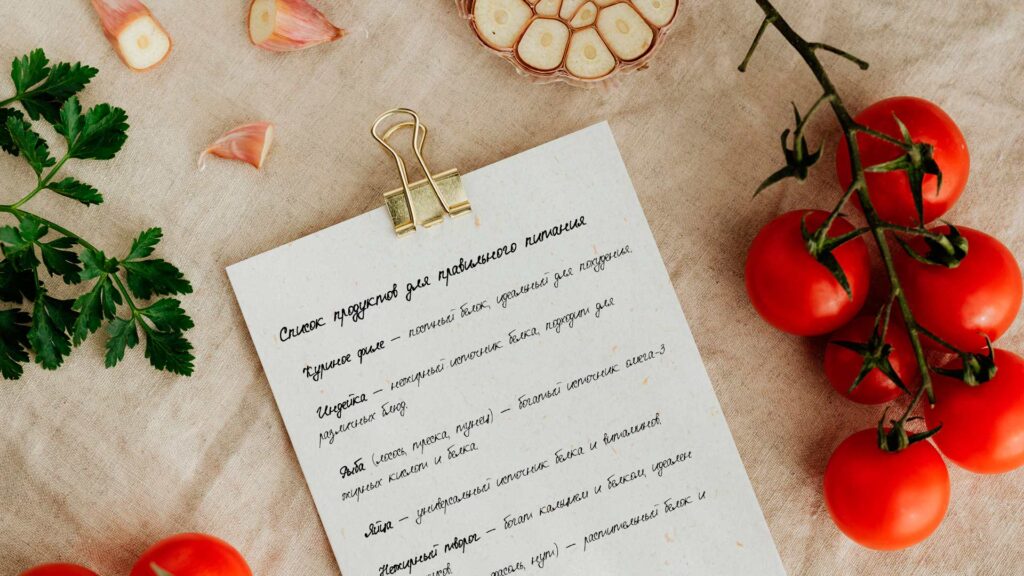 Список продуктов для правильного питания
Куриное филе – постный белок, идеальный для похудения.
Индейка – нежирный источник белка, подходит для
различных блюд.
Рыба (лосось, треска, тунец) – богатый источник омега-3
жирных кислот и белка.
Яйца – универсальный источник белка и витаминов.
Нежирный творог – богат кальцием и белком, идеален
нут) – растительный белок и